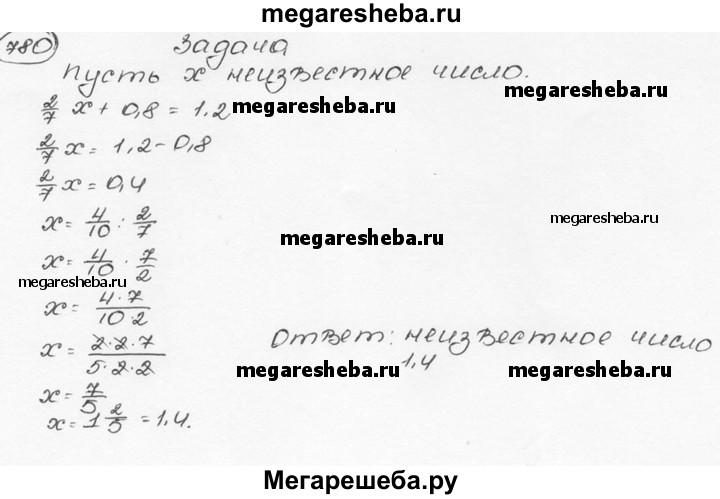 megaresheba.ru
780 Задача
Пусть x неизвестное число.
megaresheba.ru
2/7 x + 0,8 = 1,2
megaresheba.ru
2/7 x = 1,2 - 0,8
2/7 x = 0,4
x = 4/10 : 2/7
megaresheba.ru
megaresheba.ru
x = 4/10 · 7/2
megaresheba.ru
x = 4·7/10·2
x = 2·2·7/5·2·2
Ответ: неизвестное число
1,4
megaresheba.ru
megaresheba.ru
x = 7/5
x = 1 2/5 = 1,4.
Мегарешеба.ру